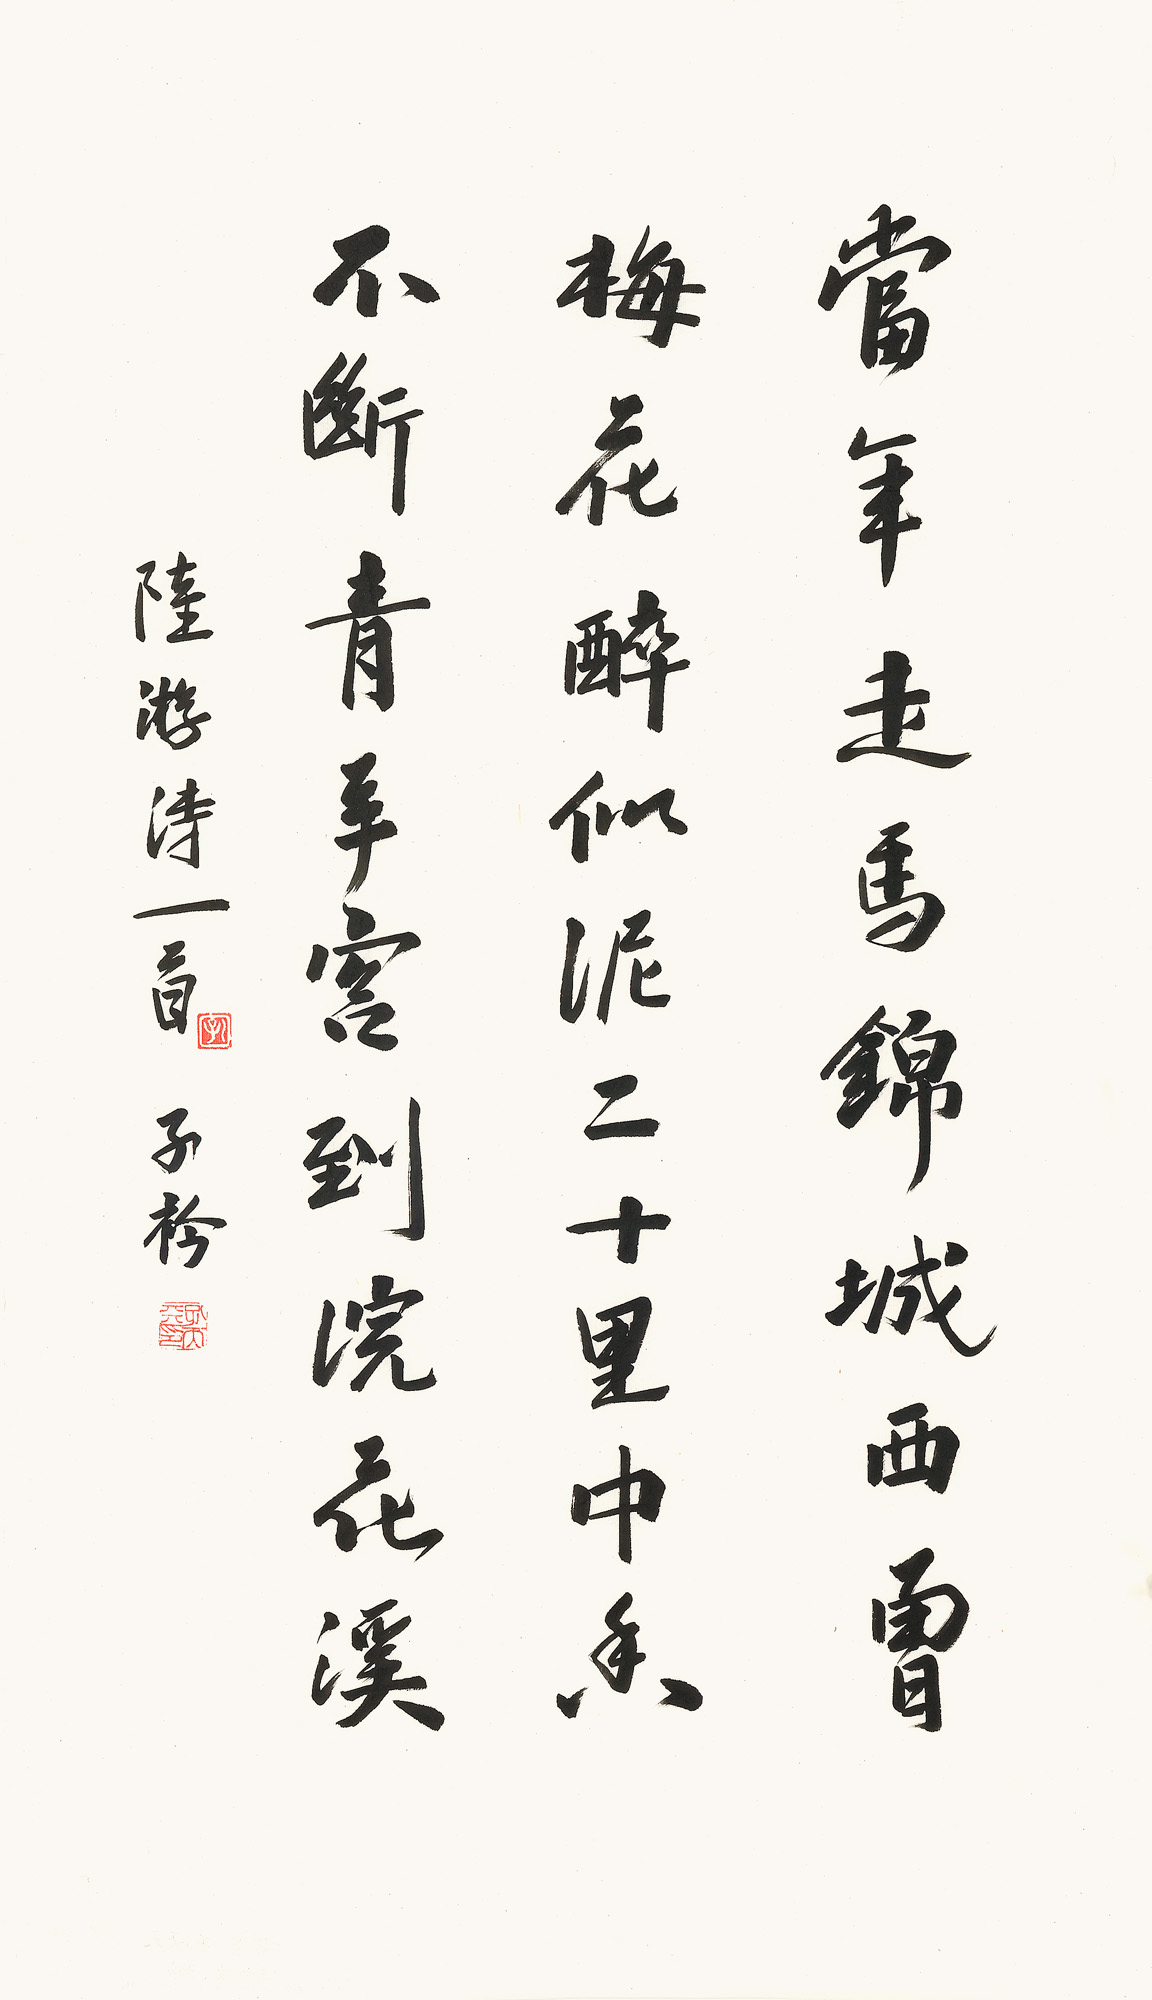 當年走馬錦城西曾
梅花醉似泥二十里中香
不斷青羊宮到浣花溪
陸游詩一首
子衿